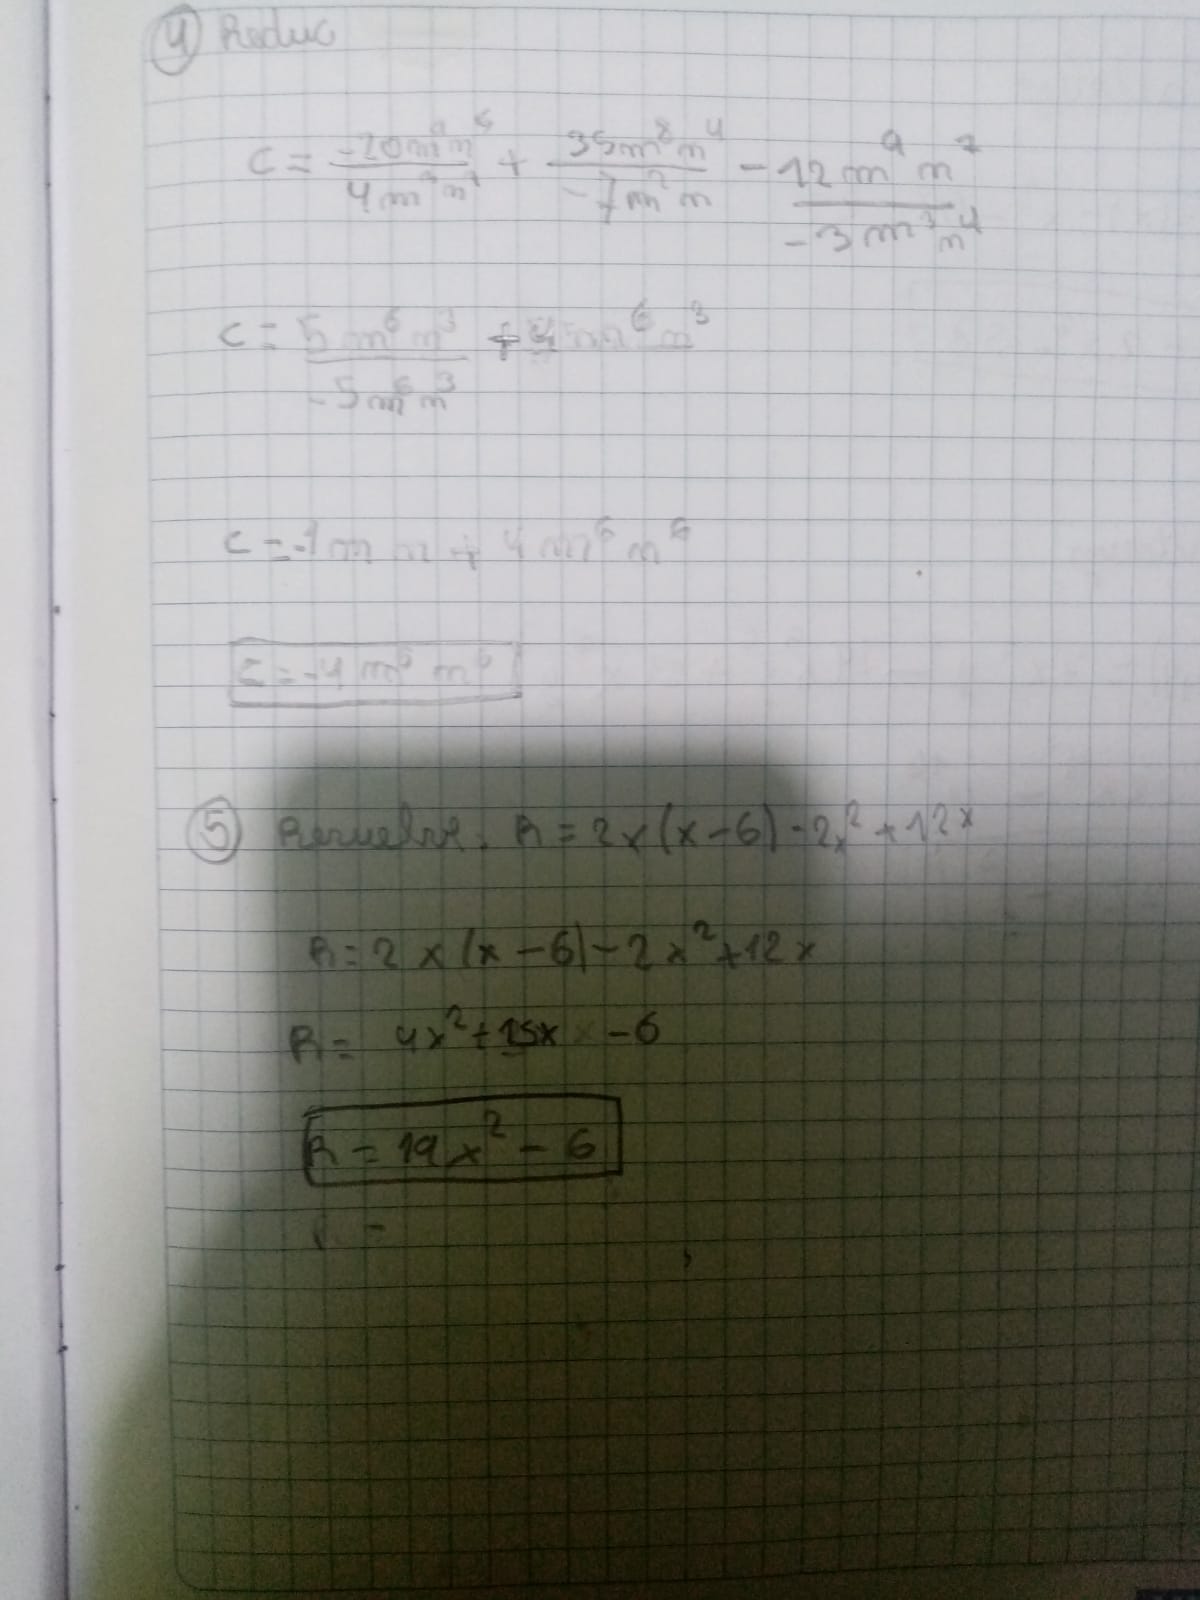 4) Reduc
C = \frac{-20m^9n^5}{4m^3n^2} + \frac{35m^8n^4}{-7m^2n} - \frac{12m^9n^7}{-3m^3n^4}
C = \frac{5m^6n^3}{-5m^6n^3} + 4m^6n^3
C = -1mn + 4m^6n^6
C = -4m^6n^6
5) Resuelve: R = 2x(x-6) - 2x^2 + 12x
R = 2x(x-6) - 2x^2 + 12x
R = 4x^2 + 15x - 6
R = 19x^2 - 6